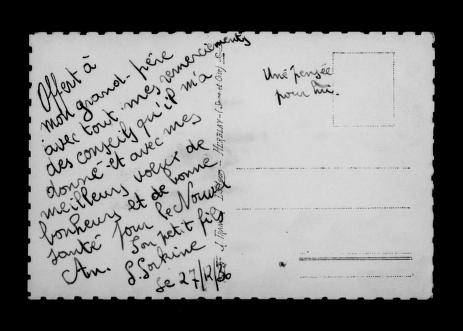 Offert à
mon grand-père
avec tout mes remerciements
des conseils qu'il m'a
donné et avec mes
meilleurs voeux de
bonheurs et de bonne
santé pour le Nouvel
An. Son petit fils
Le 27/12/
Une pensée
pour lui.
HERBLAY-(Seine et Oise)